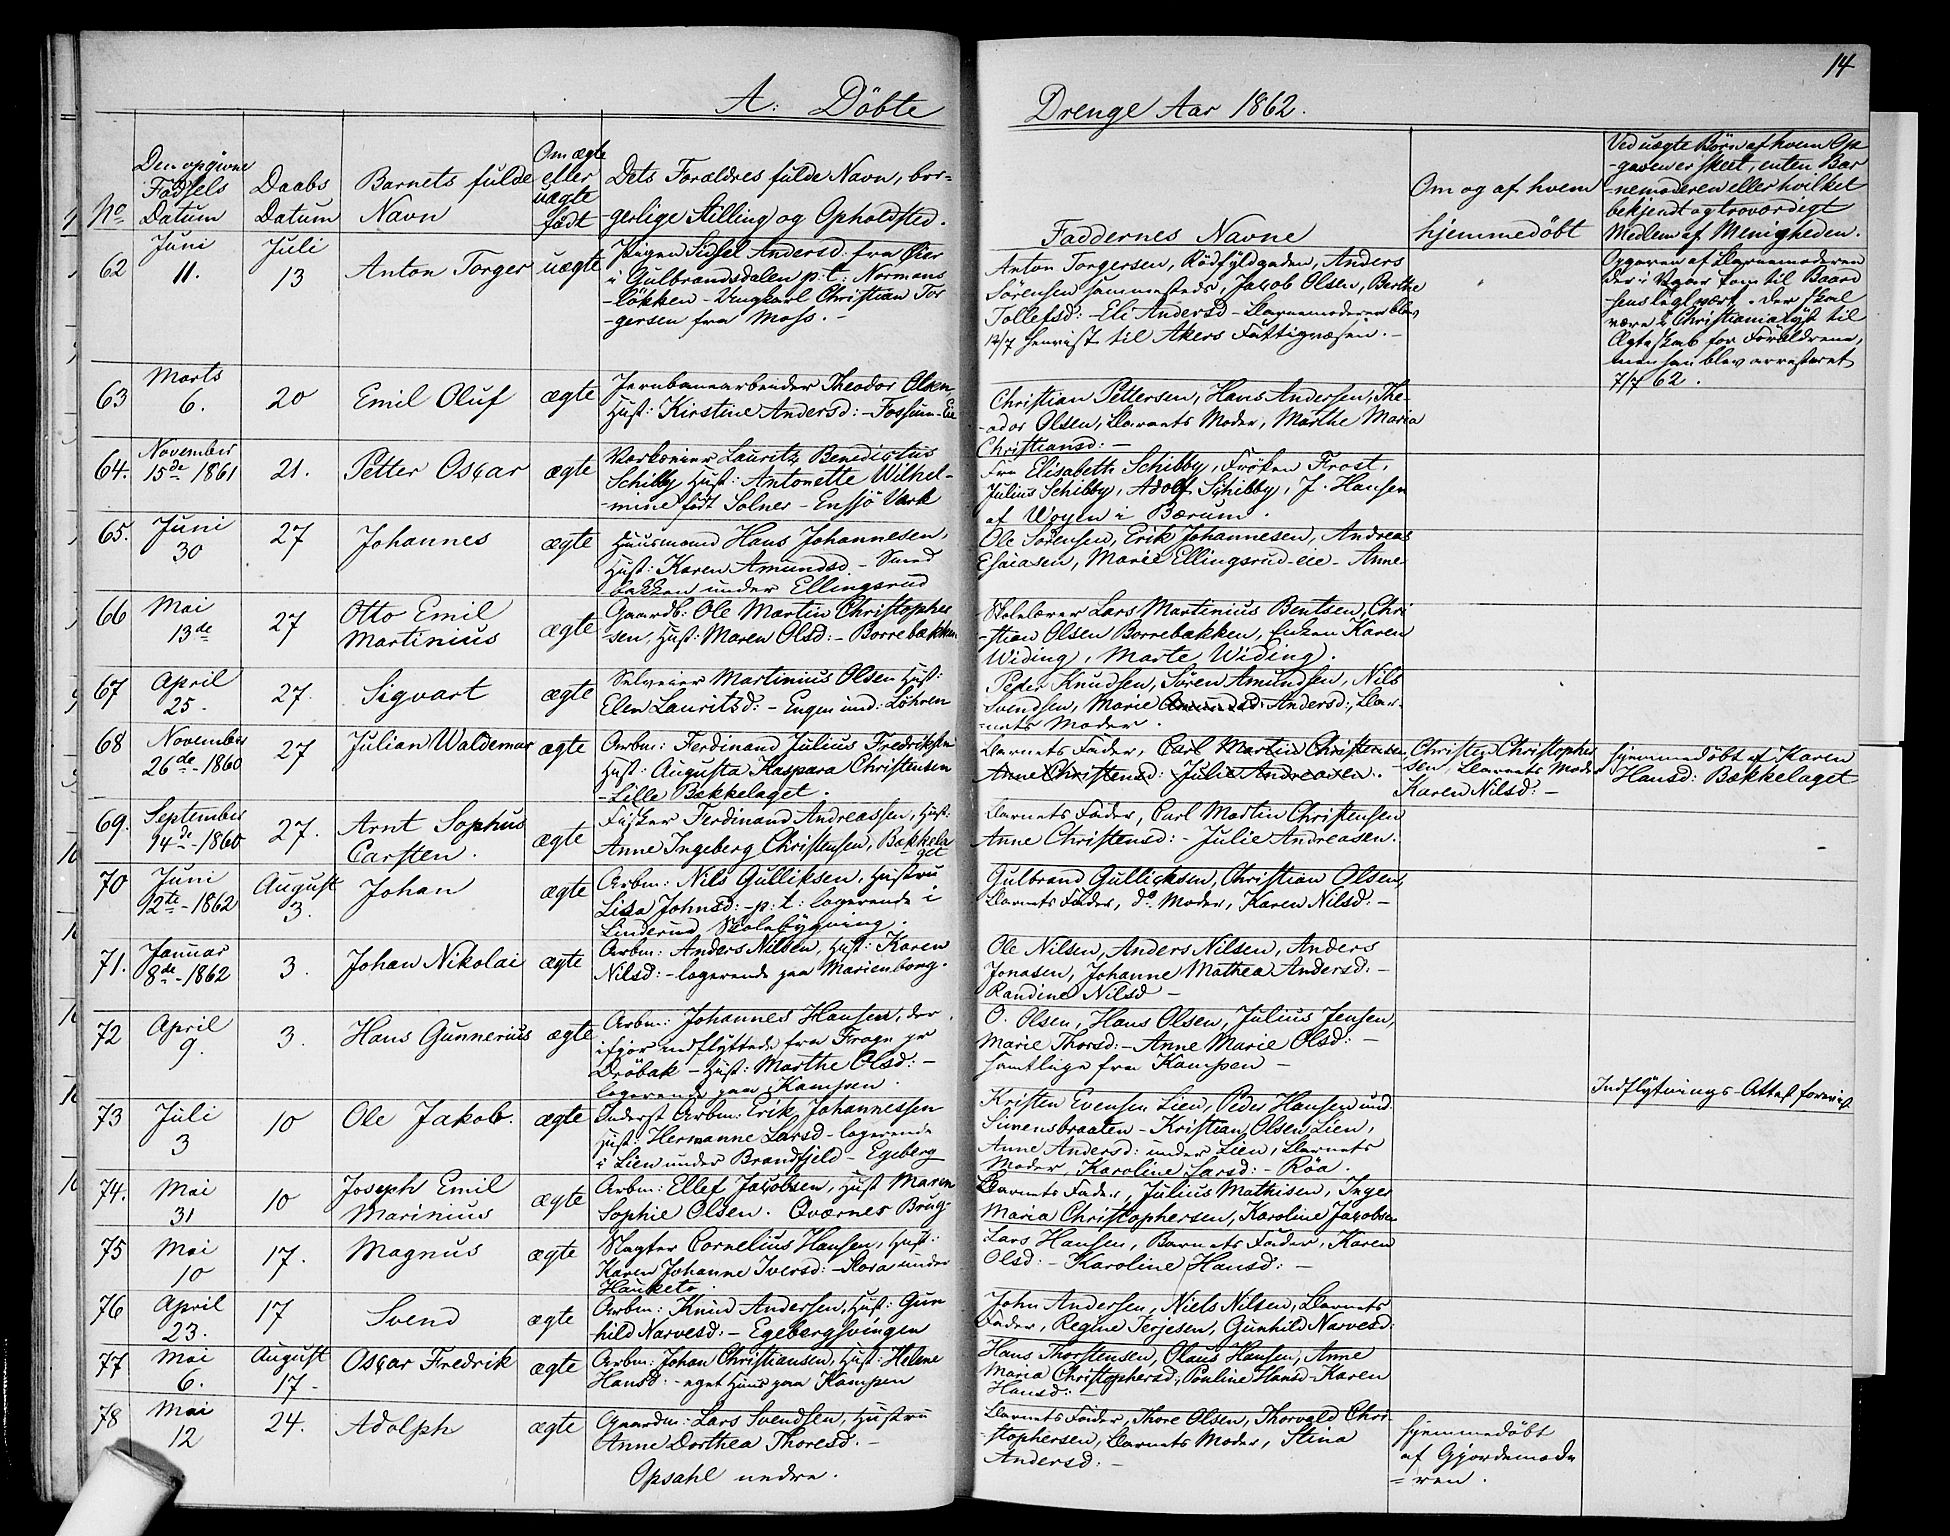 14
A. Döbte Drenge Aar 1862.
No
Den opgivne
Fødsels
Datum
Daabs
Datum
Barnets fulde
Navn
Om ægte
eller
uægte
født
Dets Forældres fulde Navn, bor-
gerlige Stilling og Opholdsted.
Faddernes Navne
Om og af hvem
hjemmedøbt
Ved uægte Børn af hvem Op
-gaven er skeet, enten Bar
-nemoderen eller hvilket
bekjendt og troværdigt
Medlem af Menigheden.
62
Juni
11.
Juli
13
Anton Torger
uægte
Pigen Sidsel Andersd: fra Øier
i Gulbrandsdalen p.t: Normans
løkken - Ungkarl Christian Tor
-gersen fra Moss. -
Anton Torgersen, Rödfyldgaden, Anders
Sørensen sammesteds, Jacob Olsen, Berthe
Tollefsd: - Eli Andersd - Barnemoderen blev
12/7 henvist til Akers Fattigvæsen. -
Opgaven af Barnemoderen
der i Vaar kom til Baard
være i Christiania
Ægteskab for Forældrene,
men han blev arresteret
7/7 62.
63
Marts
6.
20
Emil Oluf
ægte
Jernbanearbeider Theodor Olsen,
Hust: Kirstine Andersd: - Fossum-Eie
Christian Pettersen, Hans Andersen, The-
-odor Olsen, Barnets Moder, Marthe Maria
Christiansd: -
64.
November
15de 1861
21.
Petter Oscar
ægte
Værkseier Lauritz Benedictus
Schibby Hust: Antonette Wilhel-
-mine født Solner - Ensjö Værk
Fru Elisabeth Schibby, Frøken Frost,
Julius Schibby, Adolf Schibby, J. Hansen
af Wøyen i Bærum.
65.
Juni
30
27
Johannes
ægte
Huusmand Hans Johannesen,
Hust: Karen Amundsd - Smed
bakken under Ellingsrud
Ole Sørensen, Erik Johannesen, Andreas
Esaiasen, Marie Ellingsrud-eie - Anne
66
Mai
13de
27
Otto Emil
Martinius
ægte
Gaardb: Ole Martin Christopher
-sen, Hust: Maren Olsd: - Borrebækken
Skolelærer Lars Martinius Bentsen, Chri
-stian Olsen Borrebækken, Enken Karen
Widing, Marte Widing.
67
April
25.
27.
Sigvart
ægte
Selveier Martinius Olsen Hust:
Elen Lauritsd: - Engen und: Löhren
Peder Knudsen, Søren Amundsen, Nils
Svendsen, Marie Amundsd: Andersd:, Bar-
-nets Moder.
68
November
26de-1860
27
Julian Waldemar
ægte
Arbm: Ferdinand Julius Fredriksen
Hust: Augusta Kaspara Christensen
- Lille Bækkelaget.
Barnets Fader, Carl Martin Christensen
Anne Christensd: Julie Andreasen.
Christen Christophers
sen, Barnets Moder
Karen Nilsd: -
Hjemmedöbt af Karen
Hansd: Bækkelaget
69.
September
14de-1860
27.
Arnt Sophus
Carsten.
ægte
Fisker Ferdinand Andreassen, Hust:
Anne Ingeberg Christensen, Bækkela
-get
Barnets Fader, Carl Martin Christensen
Anne Christensd: - Julie Andreasen.
70
Juni
12te-1862
August
3.
Johan
ægte
Arbm: Nils Gulliksen, Hustru
Lisa Johnsd: - p:t: logerende i
Linderud Skolebygning.
Gulbrand Gullicksen, Christian Olsen,
Barnets Fader, do Moder, Karen Nilsd: -
71.
Januar
8de-1862
3.
Johan Nikolai
ægte
Arbm: Anders Nilsen, Hust: Karen
Nilsd: - logerende paa Marienborg.
Ole Nilsen, Anders Nilsen, Anders
Jonasen, Johanne Mathea Andersd: -
Randine Nilsd -
72
April
9.
3.
Hans Gunnerius
ægte
Arbm: Johannes Hansen, der
ifjor indflyttede fra Frogn pr
Dröbak - Hust: Marthe Olsd: -
logerende paa Kampen.
O. Olsen, Hans Olsen, Julius Jensen,
Marie Thorsd: - Anne Marie Olsd: -
samtlige fra Kampen -
Indflytnings-Attest forevist
73
Juli
3
10
Ole Jakob.
ægte
Inderst Arbm: Erik Johannessen
Hust: Hermanne Larsd - logerende
i Lien under Brandfjeld - Egeberg
Kristen Evensen Lien, Peder Hansen und
Simensbraaten - Kristian Olsen Lien,
Anne Andersd: under Lien, Barnets
Moder, Karoline Larsd: - Røa.
74.
Mai
31
10
Joseph Emil
Marinius
ægte
Arbm: Ellef Jacobsen, Hust Maren
Sophie Olsen. Qværnes Brug-
Barnets Fader, Julius Mathisen, Inger
Maria Christophersen, Karoline Jacobsen
75
Mai
10
17.
Magnus
ægte
Slagter Cornelius Hansen, Hust:
Karen Johanne Iversd: - Flora under
Hauketo
Lars Hansen, Barnets Fader, Karen
Olsd: - Karoline Hansd: -
76
April
23.
17
Svend
ægte
Arbm: Knud Andersen, Hust: Gun
hild Narvesd: - Egebergsvingen
John Andersen, Niels Nilsen, Barnets
Fader, Regine Terjesen, Gunhild Narvesd:
77
Mai
6.
August
17-
Oscar Fredrik
ægte
Arbm: Johan Christiansen, Hust: Helene
Hansd: - eget Huus paa Kampen
Hans Thorstensen, Olaus Hansen, Anne
Maria Christophersd:, Pauline Hansd - Karen
Hansd: -
78
Mai
12
24.
Adolph
ægte
Gaardm: Lars Svendsen, Hustru
Anne Dorthea Thoresd. -
Opsahl nedre.
Barnets Fader, Thore Olsen, Thorvald Chri-
-stophersen, Barnets Moder, Stina
Andersd: -
Hjemmedöbt
af Gjordemode
-ren.